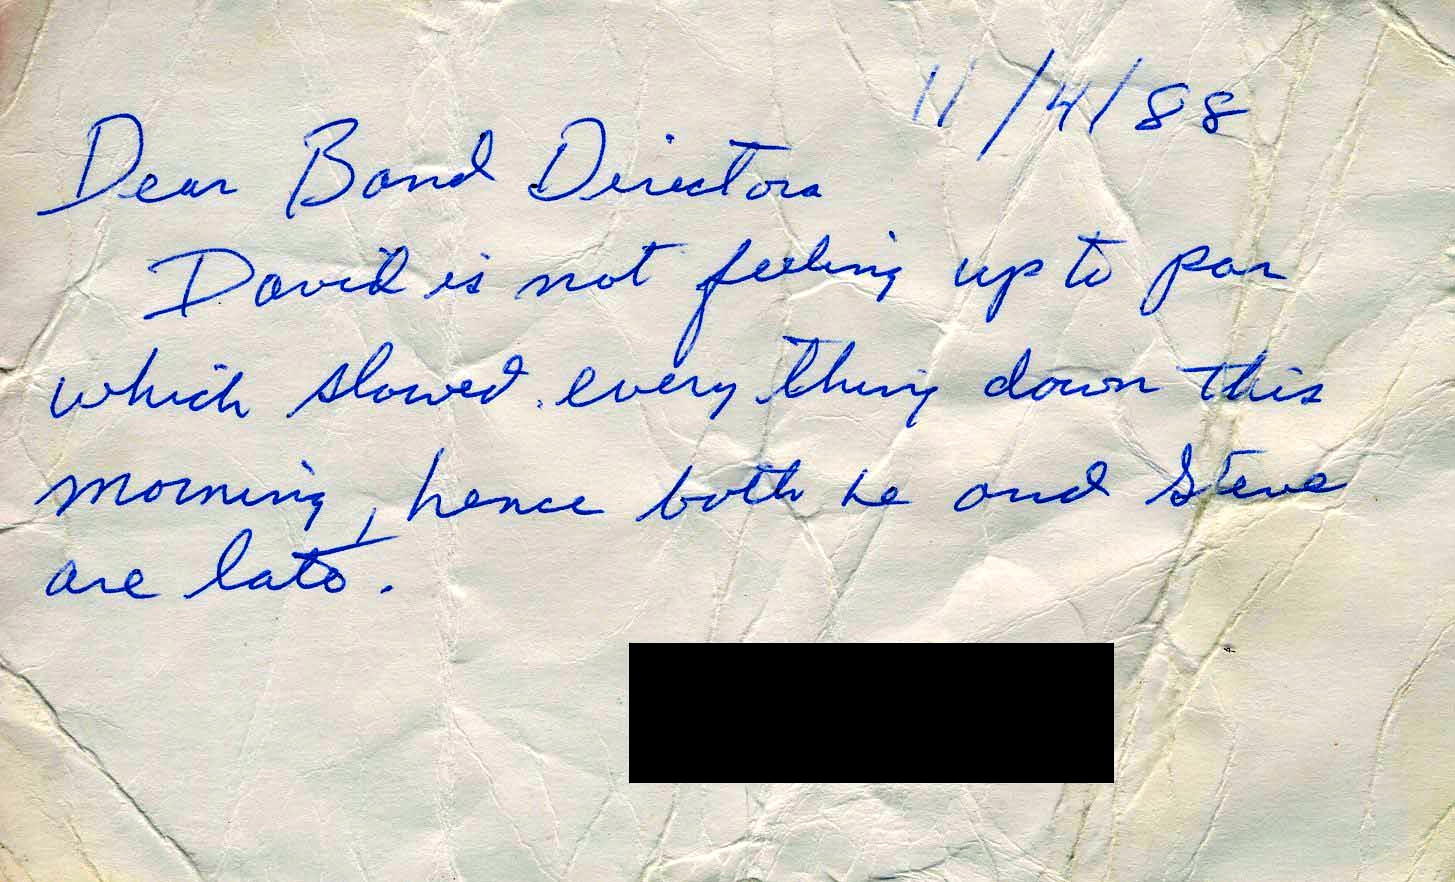 11/4/88
Dear Band Directors
David is not feeling up to par
which slowed every thing down this
morning, hence both he and Steve
are late.